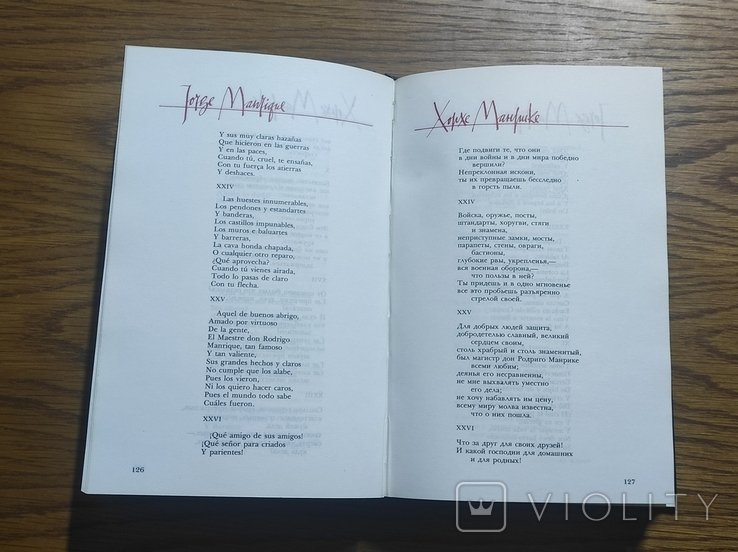 Jorge Manrique
Y sus muy claras hazañas
Que hicieron en las guerras
Y en las paces,
Cuando tú, cruel, te ensañas,
Con tu fuerça los atierras
Y deshaces.
XXIV
Las huestes innumerables,
Los pendones y estandartes
Y banderas,
Los castillos impunables,
Los muros e baluartes
Y barreras,
La cava honda chapada,
O cualquier otro reparo,
¿Qué aprovecha?
Cuando tú vienes airada,
Todo lo pasas de claro
Con tu flecha.
XXV
Aquel de buenos abrigo,
Amado por virtuoso
De la gente,
El Maestre don Rodrigo
Manrique, tan famoso
Y tan valiente,
Sus grandes hechos y claros
No cumple que los alabe,
Pues los vieron,
Ni los quiero hacer caros,
Pues el mundo todo sabe
Cuáles fueron.
XXVI
¡Qué amigo de sus amigos!
¡Qué señor para criados
Y parientes!
126
Хорхе Манрике
Где подвиги те, что они
в дни войны и в дни мира победно
вершили?
Непреклонная искони,
ты их превращаешь бесследно
в горсть пыли.
XXIV
Войска, оружье, посты,
штандарты, хоругви, стяги
и знамена,
неприступные замки, мосты,
парапеты, стены, овраги,
бастионы,
глубокие рвы, укрепленья,—
вся военная оборона,—
что пользы в ней?
Ты придешь и в одно мгновенье
все это пробьешь разъяренно
стрелой своей.
XXV
Для добрых людей защита,
добродетелью славный, великий
сердцем своим,
столь храбрый и столь знаменитый,
был магистр дон Родриго Манрике
всеми любим;
деянья его несравненны,
не мне выхвалять уместно
его дела;
не хочу набавлять им цену,
всему миру молва известна,
что о них пошла.
XXVI
Что за друг для своих друзей!
И какой господин для домашних
и для родных!
127
VIOLITY